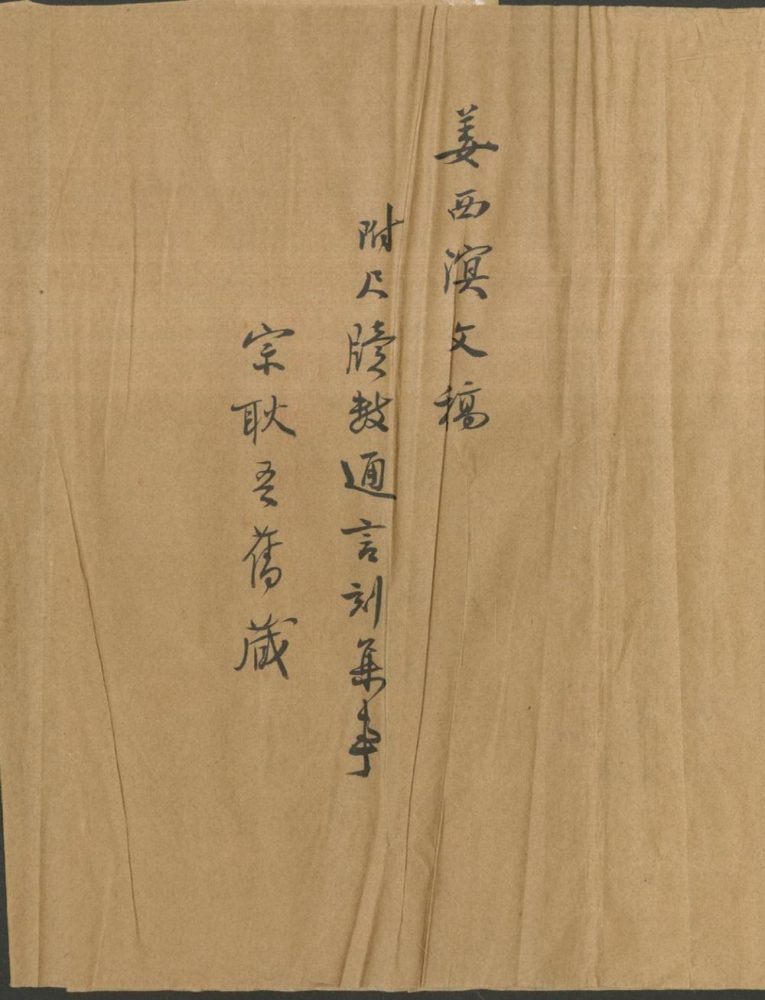 姜西溟文稿
附尺牘數通言刻集事
宗耿吾舊藏